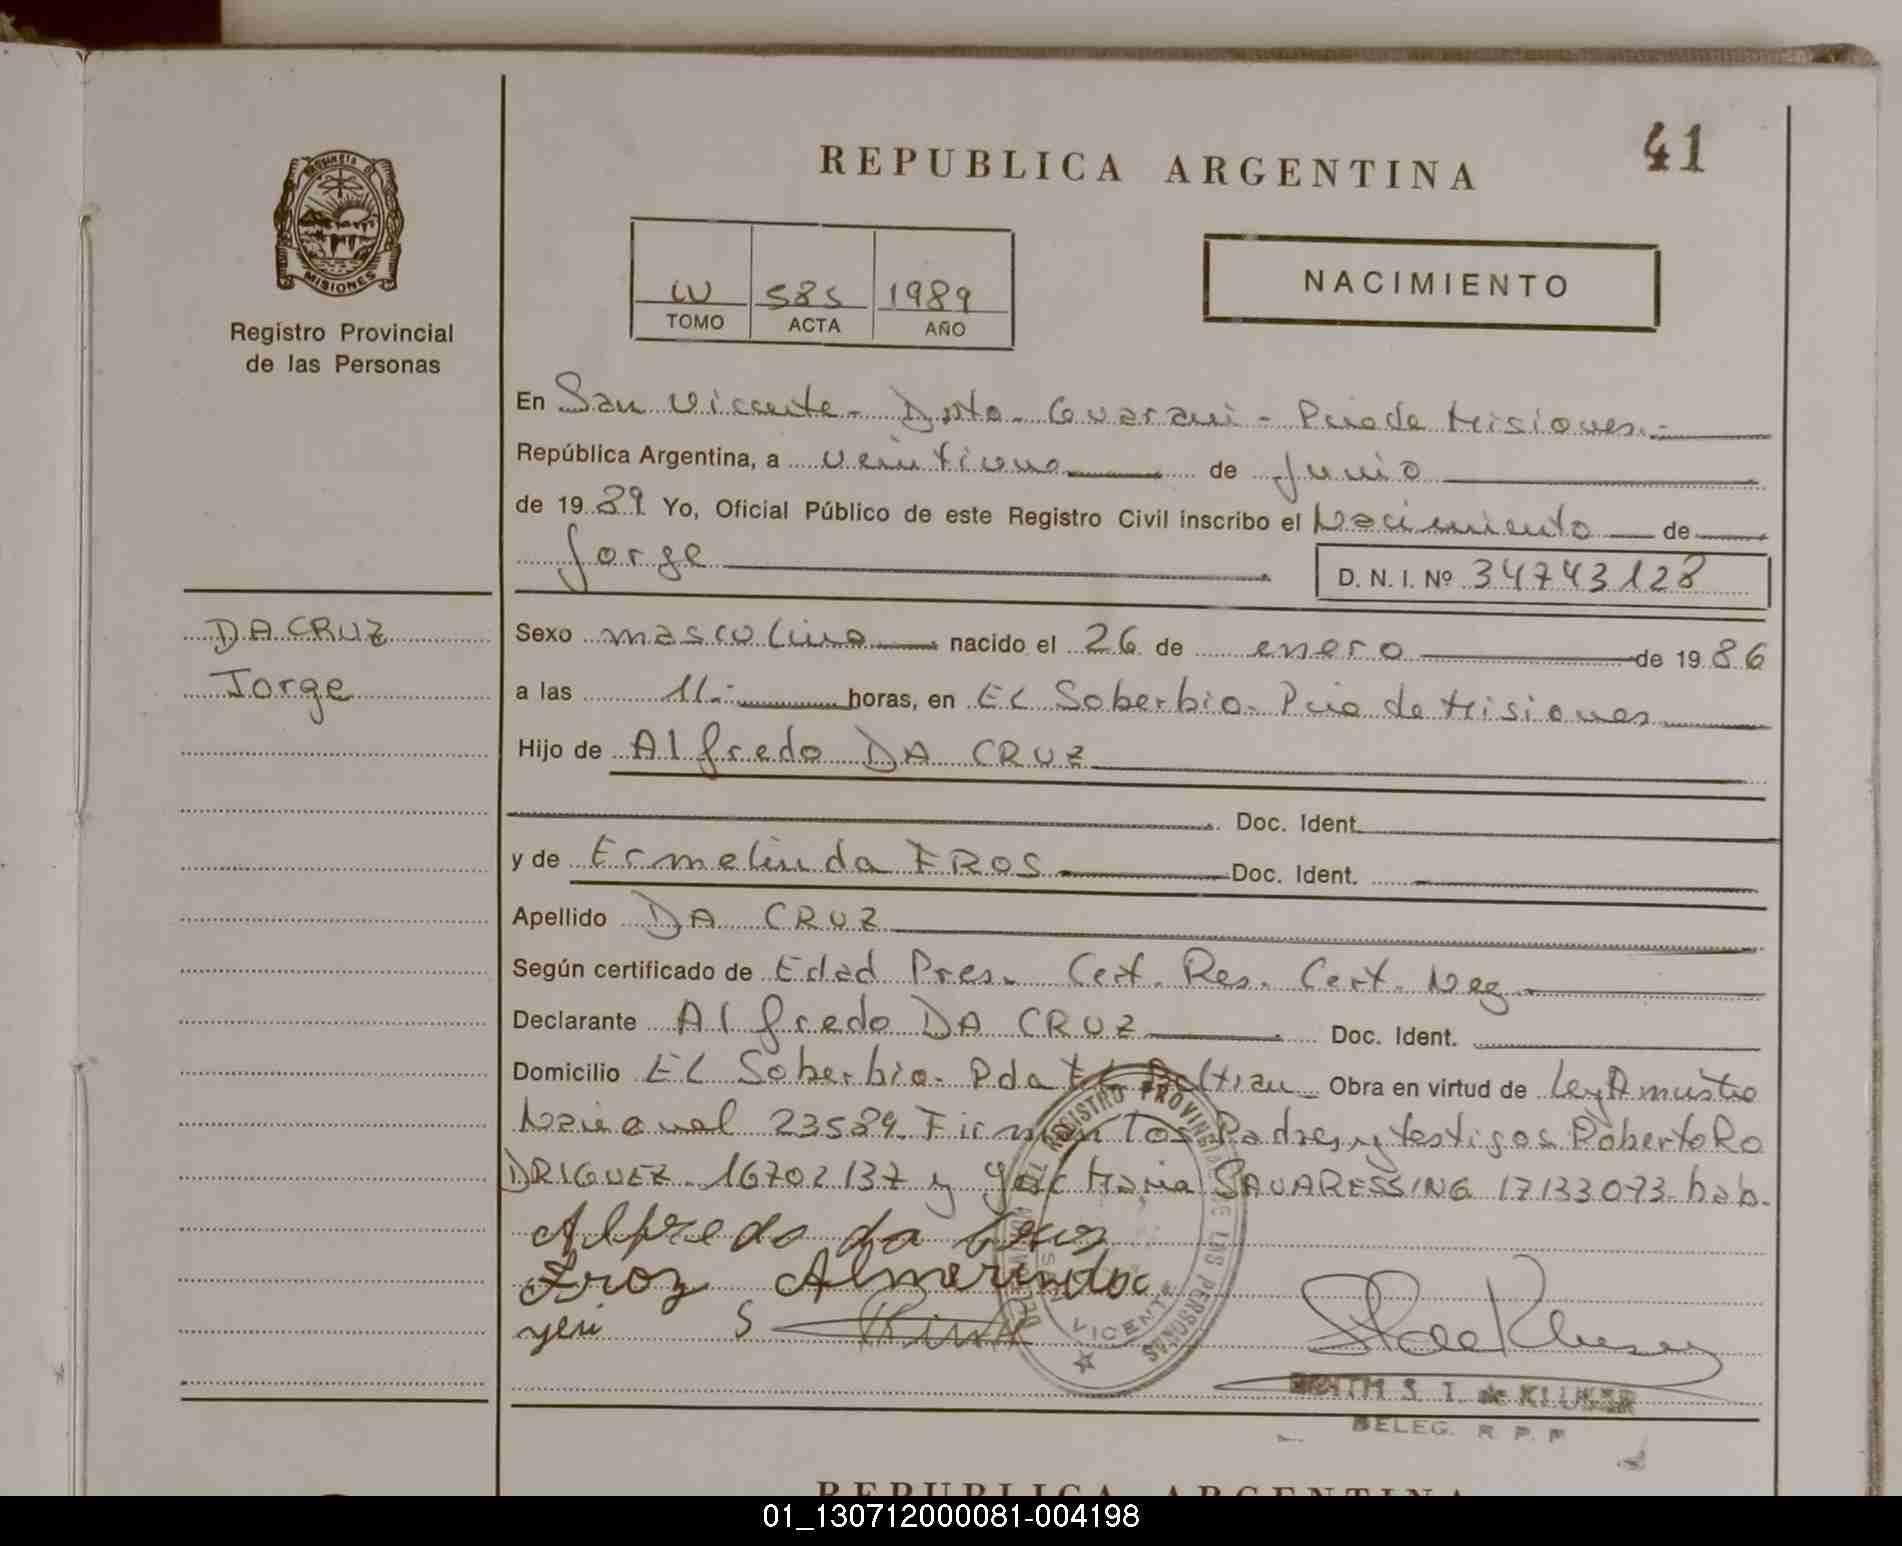 REPUBLICA ARGENTINA
41
MISIONES
Registro Provincial
de las Personas
IV 585 1989
TOMO ACTA AÑO
NACIMIENTO
En San Vicente - Dpto - Guarani - Pcia de Misiones.-
República Argentina, a veintiuno de Junio
de 1989 Yo, Oficial Público de este Registro Civil inscribo el Nacimiento de
Jorge D. N. I. Nº 34743128
DA CRUZ
Jorge
Sexo masculino nacido el 26 de enero de 1986
a las 11.- horas, en EL Soberbio. Pcia de Misiones
Hijo de Alfredo DA CRUZ
Doc. Ident.
y de Ermelinda FROS Doc. Ident.
Apellido DA CRUZ
Según certificado de Edad Pres. Cert. Res. Cert. Neg.
Declarante Alfredo DA CRUZ Doc. Ident.
Domicilio EL Soberbio. Pda Beltran Obra en virtud de Ley Amnistia
Nacional 23584. Firman Los Padres y testigos Roberto Ro
DRIGUEZ. 16702137 y José Maria SAVARESSING 17133073. hab.
Alfredo da Cruz
Froz Almerinda
REGISTRO PROVINCIAL DE LAS PERSONAS
VICENTE
EDITH S. I. de KLUSER
DELEG. R. P. P
REPUBLICA ARGENTINA
01_130712000081-004198